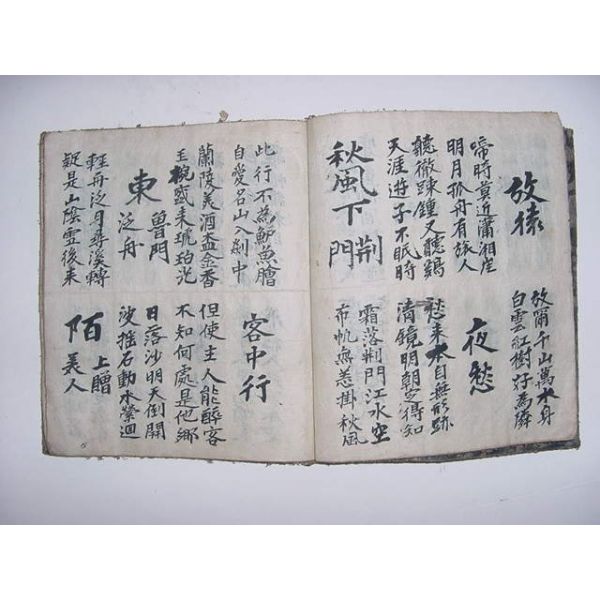 放猿
放爾千山萬水身
白雲紅樹好為隣
啼時莫近瀟湘岸
明月孤舟有旅人
夜愁
聽徹踈鐘又聽鷄
天涯遊子不眠時
愁來本自無形跡
清鏡明朝空得知
秋風下荆門
霜落荆門江水空
布帆無恙掛秋風
此行不為鱸魚膾
自愛名山入剡中
客中行
蘭陵美酒盃金香
玉椀盛来琥珀光
但使主人能醉客
不知何處是他鄉
東魯門泛舟
日落沙明天倒開
波搖石動水縈迴
輕舟泛月尋溪轉
疑是山陰雪後来
陌上贈美人